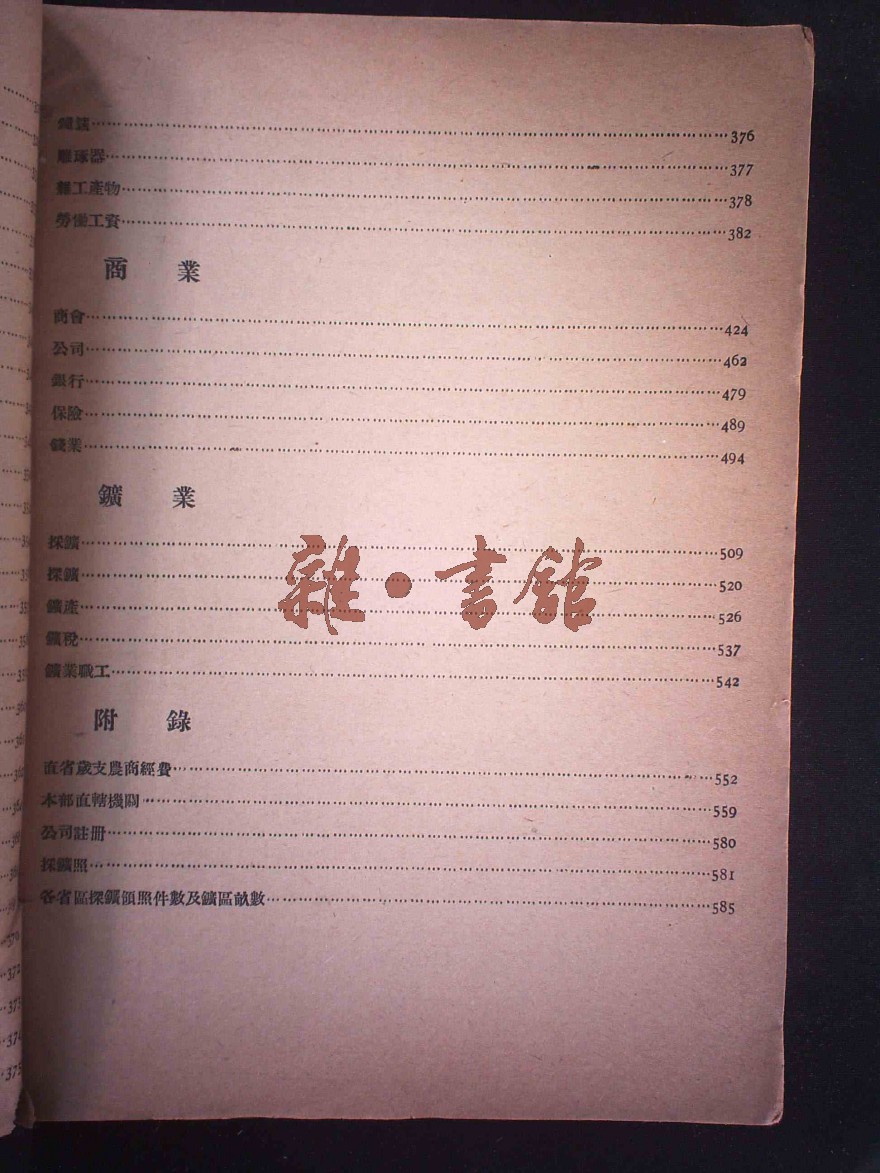 雕琢器 377
雜工產物 378
勞働工資 382
商業
商會 424
公司 462
銀行 479
保險 489
錢業 494
鑛業
採鑛 509
探鑛 520
鑛產 526
鑛稅 537
鑛業職工 542
附錄
直省歲支農商經費 552
本部直轄機關 559
公司註冊 580
採鑛照 581
各省區探鑛領照件數及鑛區畝數 585
雜·書館
370
372
373
374
375